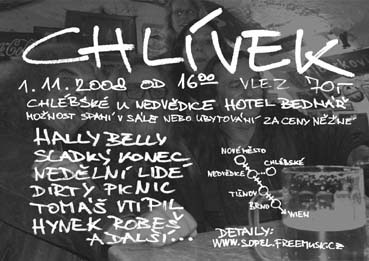 CHLÍVEK
1. 11. 2008 OD 1600 VLEZ 70,-
CHLÉBSKÉ U NEDVĚDICE HOTEL BEDNÁŘ
MOŽNOST SPANÍ V SÁLE NEBO UBYTOVÁNÍ ZA CENY NĚŽNÉ
HALLY BELLY
SLADKÝ KONEC
NEDĚLNÍ LIDÉ
DIRTY PICNIC
TOMÁŠ VTIPIL
HYNEK ROBEŠ
A DALŠÍ...
NOVÉ MĚSTO
CHLÉBSKÉ
NEDVĚDICE
TIŠNOV
BRNO
WIEN
DETAILY:
WWW.SOPEL.FREEMUSIC.CZ